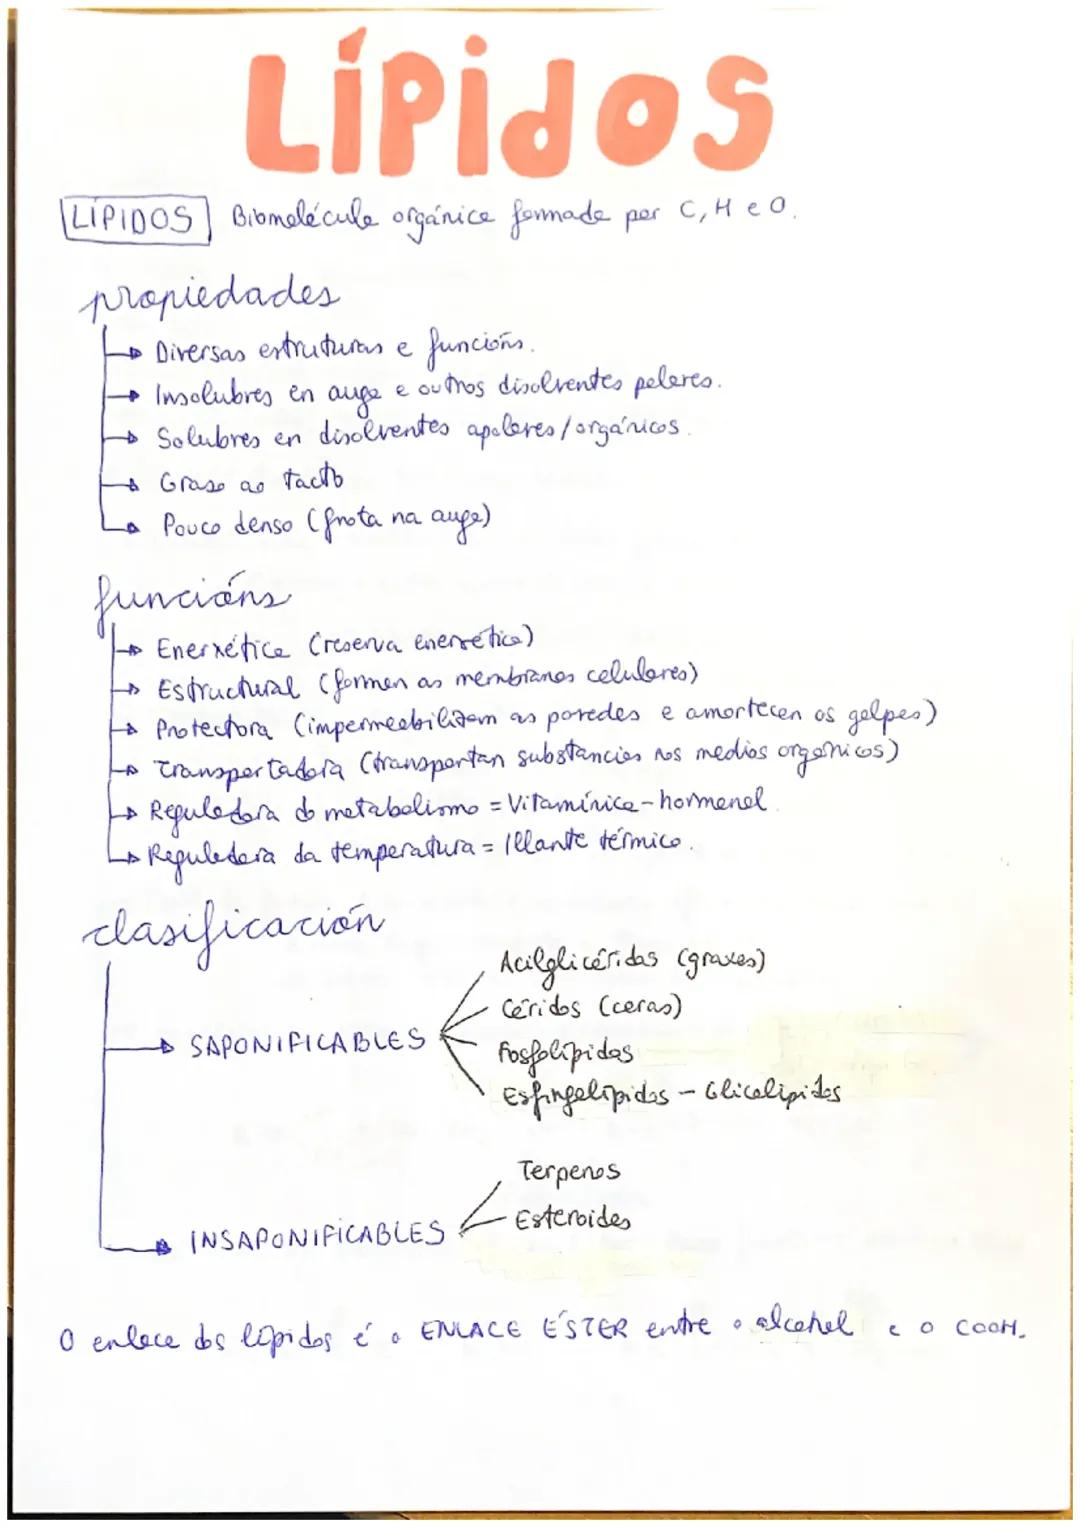 LÍPIDOS
LÍPIDOS Biomolécula orgánica formada por C, H e O.
propiedades
Diversas estruturas e funcións.
Insolubres en auga e outros disolventes polares.
Solubres en disolventes apolares/orgánicos.
Graso ao tacto
Pouco denso (frota na auga)
funcións
Enerxética (reserva enerxética)
Estructural (forman as membranas celulares)
Protectora (impermeabilizam as paredes e amortecen os golpes)
Transportadora (transportan substancias nos medios orgánicos)
Reguladora do metabolismo = Vitamínica - hormonal.
Reguladora da temperatura = Illante térmico.
clasificación
SAPONIFICABLES
Acilglicéridos (graxas)
Céridos (ceras)
Fosfolípidos
Esfingolípidos - Glicolípidos
INSAPONIFICABLES
Terpenos
Esteroides
O enlace dos lípidos é o ENLACE ÉSTER entre o alcohol e o COOH.